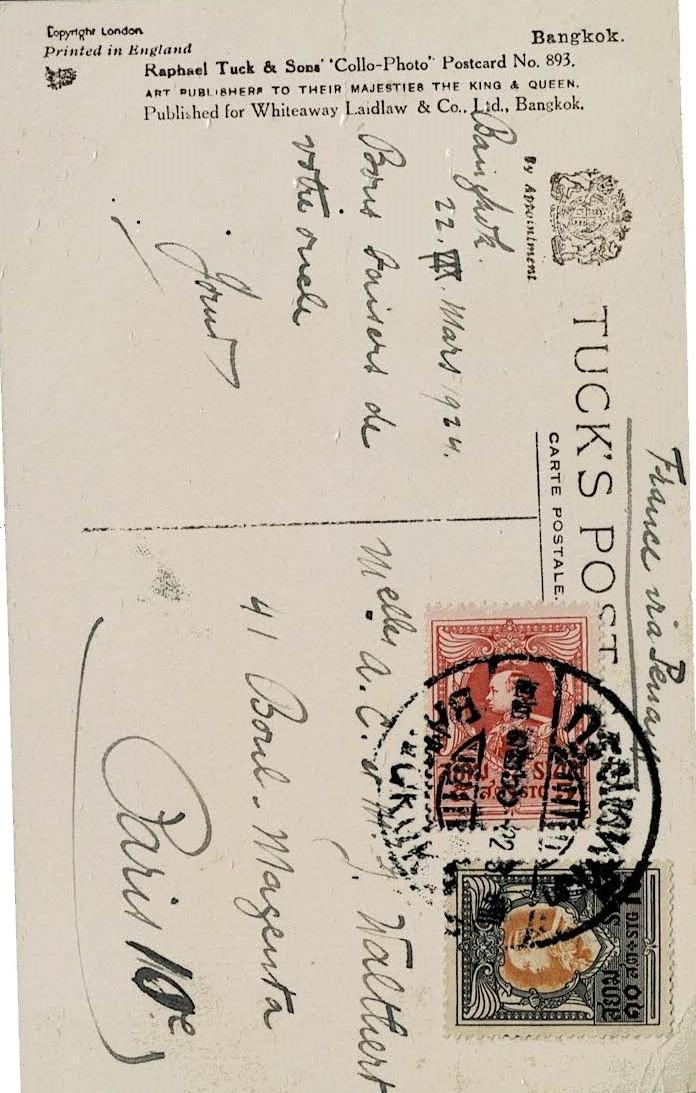 Copyright London
Printed in England
Bangkok.
Raphael Tuck & Sons' "Collo-Photo" Postcard No. 893.
ART PUBLISHERS TO THEIR MAJESTIES THE KING & QUEEN.
Published for Whiteaway Laidlaw & Co., Ltd., Bangkok.
By Appointment
TUCK'S POST
CARTE POSTALE.
France via Penang
Bangkok.
22. Mars 1924.
Bons baisers de
votre oncle
Melles A. C. et M. J. Walther
41 Boul. Magenta
Paris 10e